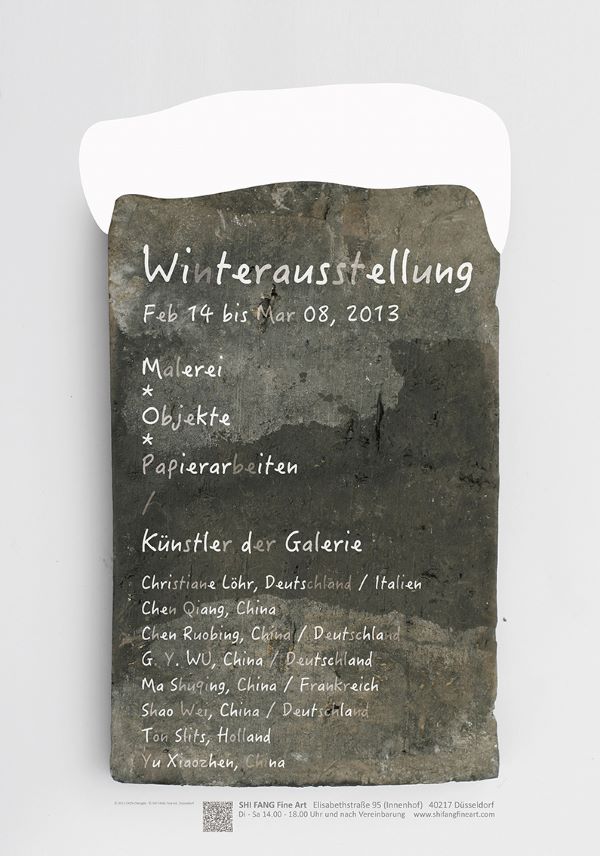 Winterausstellung
Feb 14 bis Mar 08, 2013
Malerei
*
Objekte
*
Papierarbeiten
/
Künstler der Galerie
Christiane Löhr, Deutschland / Italien
Chen Qiang, China
Chen Ruobing, China / Deutschland
G. Y. WU, China / Deutschland
Ma Shuqing, China / Frankreich
Shao Wei, China / Deutschland
Ton Slits, Holland
Yu Xiaozhen, China
SHI FANG Fine Art Elisabethstraße 95 (Innenhof) 40217 Düsseldorf
Di - Sa 14.00 - 18.00 Uhr und nach Vereinbarung www.shifangfineart.com